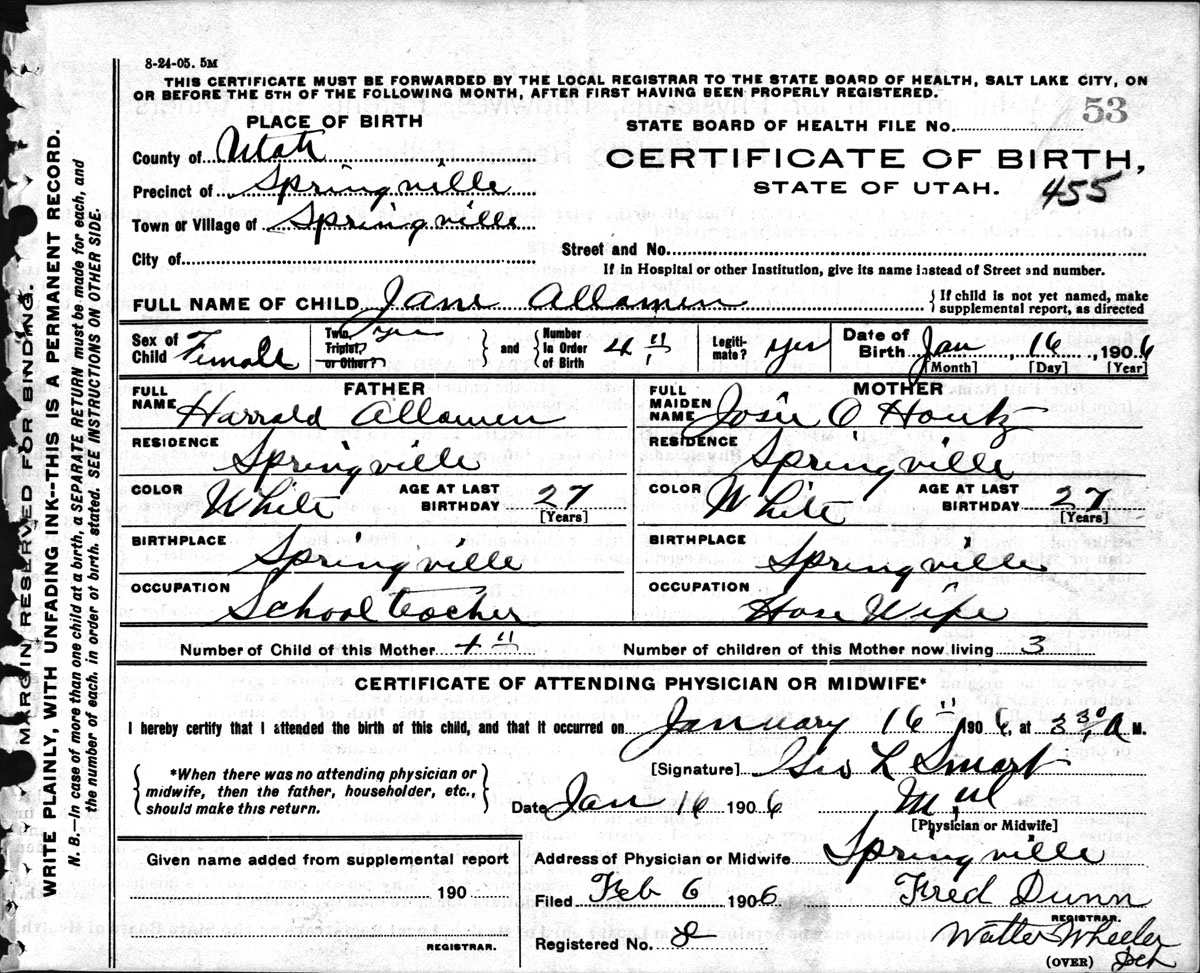 8-24-05. 5M
THIS CERTIFICATE MUST BE FORWARDED BY THE LOCAL REGISTRAR TO THE STATE BOARD OF HEALTH, SALT LAKE CITY, ON
OR BEFORE THE 5TH OF THE FOLLOWING MONTH, AFTER FIRST HAVING BEEN PROPERLY REGISTERED.
PLACE OF BIRTH
County of Utah
Precinct of Springville
Town or Village of Springville
City of
STATE BOARD OF HEALTH FILE No. 53
CERTIFICATE OF BIRTH,
STATE OF UTAH.
455
Street and No.
If in Hospital or other Institution, give its name instead of Street and number.
FULL NAME OF CHILD Jane Allamen { If child is not yet named, make supplemental report, as directed
Sex of Child Female
Twin, Triplet, or Other?
} and { Number In Order of Birth 4"
Legiti- mate? Yes
Date of Birth Jan, 16, 1906
[Month] [Day] [Year]
FATHER
FULL NAME Harrald Allamen
RESIDENCE Springville
COLOR White AGE AT LAST BIRTHDAY 27
[Years]
BIRTHPLACE Springville
OCCUPATION School teacher
MOTHER
FULL MAIDEN NAME Josie O Houtz
RESIDENCE Springville
COLOR White AGE AT LAST BIRTHDAY 27
[Years]
BIRTHPLACE Springville
OCCUPATION Hose Wife
Number of Child of this Mother 4" Number of children of this Mother now living 3
CERTIFICATE OF ATTENDING PHYSICIAN OR MIDWIFE*
I hereby certify that I attended the birth of this child, and that it occurred on January 16" 1906, at 3 30 A M.
{ *When there was no attending physician or midwife, then the father, householder, etc., should make this return. }
[Signature] Geo L Smart
Date Jan 16 1906
[Physician or Midwife]
Given name added from supplemental report
190
REGISTRAR.
Address of Physician or Midwife Springville
Filed Feb 6 1906 Fred Dunn
REGISTRAR.
Registered No. 8 Walter Wheeler
(OVER)
MARGIN RESERVED FOR BINDING.
WRITE PLAINLY, WITH UNFADING INK--THIS IS A PERMANENT RECORD.
N. B.—In case of more than one child at a birth, a SEPARATE RETURN must be made for each, and
the number of each, in order of birth, stated. SEE INSTRUCTIONS ON OTHER SIDE.